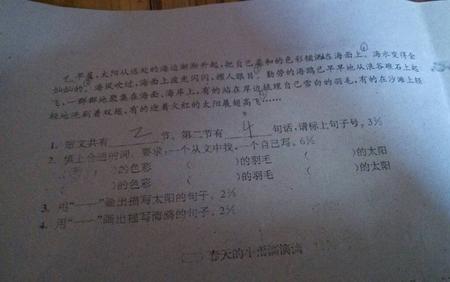 乙 早晨,太阳从远处的海边渐渐升起,把自己柔和的色彩倾泻在海面上。海水变得金
灿灿的。海风吹过,海面上波光闪闪,耀人眼目。勤劳的海鸥已早早地从浪谷礁石上起
飞,一群群地聚集在海面、海岸上,有的站在岸边梳理自己雪白的羽毛,有的在沙滩上轻
轻地洗刷着双翅,有的迎着火红的太阳展翅高飞……
1. 短文共有 2 节,第二节有 4 句话,请标上句子号。3%
2. 填上合适的词,要求:一个从文中找,一个自己写。6%
( )的色彩 ( )的羽毛 ( )的太阳
( )的色彩 ( )的羽毛 ( )的太阳
3. 用"——"画出描写太阳的句子。2%
4. 用"——"画出描写海鸥的句子。2%
(二)春天的小雨滴滴滴